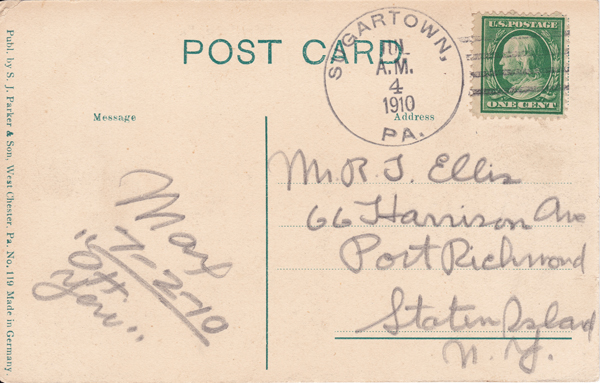 POST CARD
SUGARTOWN,
JUN
A.M.
4
1910
PA.
U.S. POSTAGE
ONE CENT
Message
Address
Publ. by S. J. Parker & Son, West Chester, Pa. No. 119 Made in Germany.
Max
7-2-10
"Oh
You"
Mr R J. Ellis
66 Harrison Ave
Port Richmond
Staten Island
N. Y.